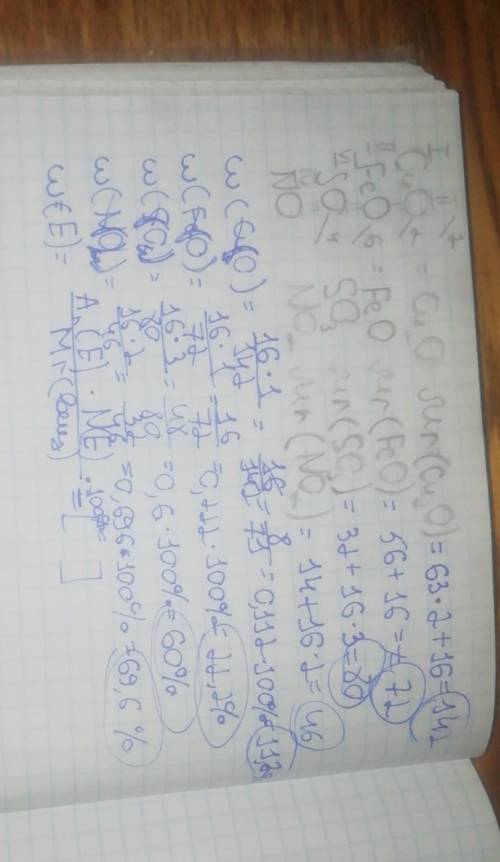 Cu₂O = Cu₂O Mr(Cu₂O) = 63·2+16=142
FeO = FeO Mr(FeO) = 56+16=72
SO SO₃ Mr(SO₃) = 32+16·3=80
NO NO₂ Mr(NO₂) = 14+16·2=46
w(Cu₂O) = 16·1/142 = 16/142 = 8/71 = 0,112·100%=11,2%
w(FeO) = 16·1/72 = 16/72 = 0,222·100%=22,2%
w(SO₃) = 16·3/80 = 48/80 = 0,6·100%=60%
w(NO₂) = 16·2/46 = 32/46 = 0,696·100%=69,6%
w(E) = Ar(E)·N(E)/Mr ·100%=